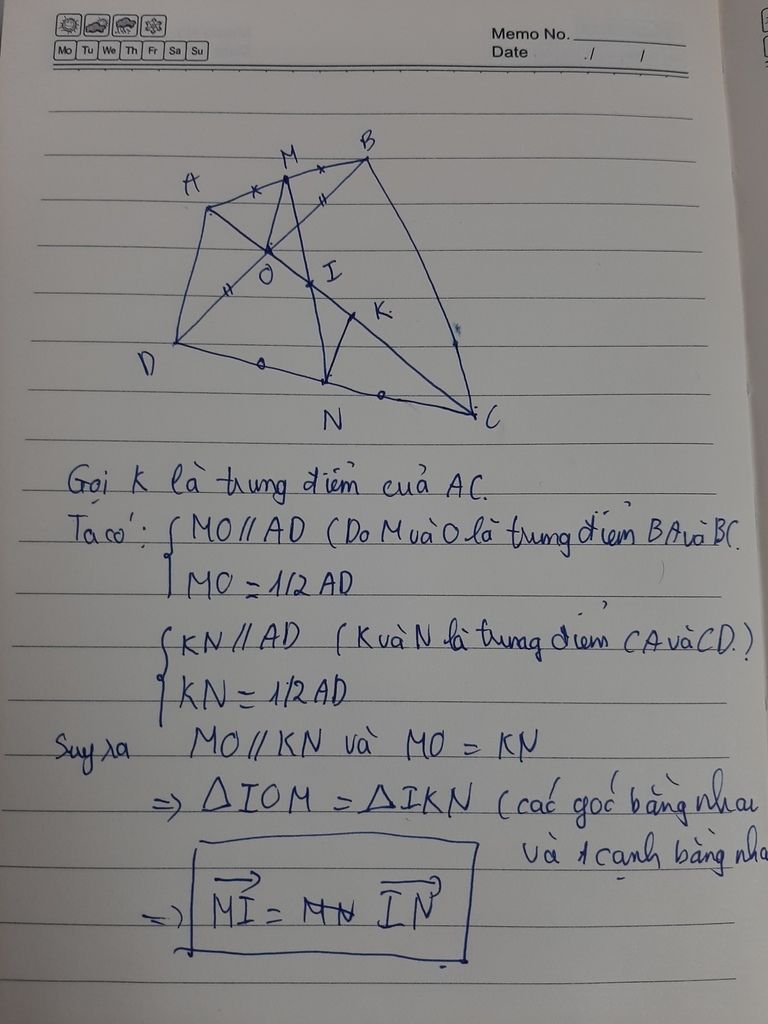 Memo No.
Mo Tu We Th Fr Sa Su
Date / /
B
M
A
O
I
K
D
N
C
Gọi K là trung điểm cuả AC.
Ta có: { MO // AD (Do M và O là trung điểm BA và BC.
MO = 1/2 AD
{ KN // AD (K và N là trung điểm CA và CD.)
KN = 1/2 AD
Suy ra MO // KN và MO = KN
=> ΔIOM = ΔIKN (các góc bằng nhau
và 1 cạnh bằng nha
=> MI = MN IN